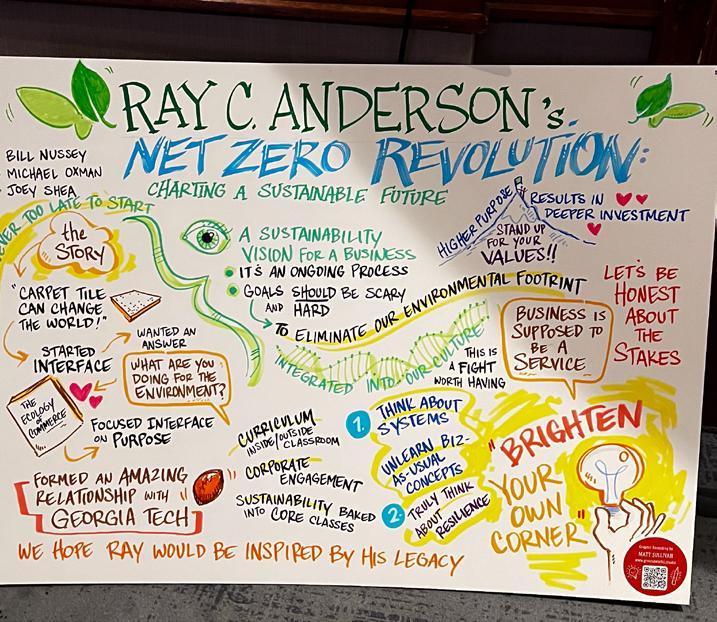 RAY C. ANDERSON's
NET ZERO REVOLUTION:
CHARTING A SUSTAINABLE FUTURE
BILL NUSSEY
MICHAEL OXMAN
JOEY SHEA
TOO LATE TO START
the
STORY
"CARPET TILE
CAN CHANGE
THE WORLD!"
STARTED
INTERFACE
WANTED AN
ANSWER
WHAT ARE YOU
DOING FOR THE
ENVIRONMENT?
THE
ECOLOGY
of
COMMERCE
FOCUSED INTERFACE
ON PURPOSE
FORMED AN AMAZING
RELATIONSHIP WITH
GEORGIA TECH
A SUSTAINABILITY
VISION FOR A BUSINESS
IT'S AN ONGOING PROCESS
GOALS SHOULD BE SCARY
AND HARD
TO ELIMINATE OUR ENVIRONMENTAL FOOTRINT
INTEGRATED INTO OUR CULTURE
THIS IS
A FIGHT
WORTH HAVING
HIGHER PURPOSE
STAND UP
FOR YOUR
VALUES!!
RESULTS IN
DEEPER INVESTMENT
BUSINESS IS
SUPPOSED TO
BE A
SERVICE
LET'S BE
HONEST
ABOUT
THE
STAKES
CURRICULUM
INSIDE/OUTSIDE
CLASSROOM
CORPORATE
ENGAGEMENT
SUSTAINABILITY BAKED
INTO CORE CLASSES
1. THINK ABOUT
SYSTEMS
UNLEARN BIZ-
AS-USUAL
CONCEPTS
2. TRULY THINK
ABOUT
RESILIENCE
"BRIGHTEN
YOUR
OWN
CORNER"
WE HOPE RAY WOULD BE INSPIRED BY HIS LEGACY
Graphic Recording by
MATT SULLIVAN